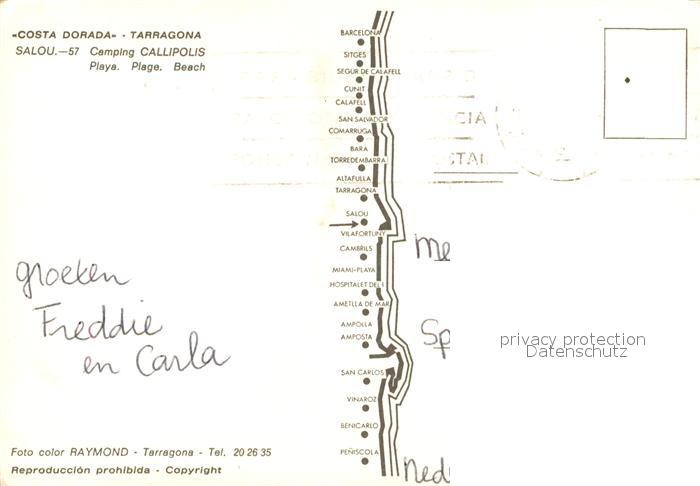 «COSTA DORADA» - TARRAGONA
SALOU.—57 Camping CALLIPOLIS
Playa. Plage. Beach
BARCELONA
SITGES
SEGUR DE CALAFELL
CUNIT
CALAFELL
SAN SALVADOR
COMARRUGA
BARÁ
TORREDEMBARRA
ALTAFULLA
TARRAGONA
SALOU
VILAFORTUNY
CAMBRILS
MIAMI-PLAYA
HOSPITALET DEL I
AMETLLA DE MAR
AMPOLLA
AMPOSTA
SAN CARLOS
VINAROZ
BENICARLO
PEÑISCOLA
groeten
Freddie
en Carla
Me
Sp
Ned
privacy protection
Datenschutz
Foto color RAYMOND - Tarragona - Tel. 20 26 35
Reproducción prohibida - Copyright